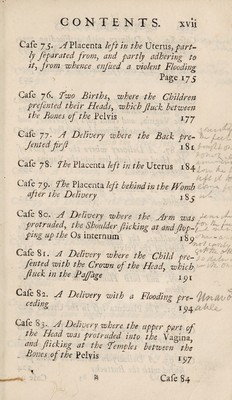 CONTENTS. xvii
Caſe 75. A Placenta left in the Uterus, part-
ly ſeparated from, and partly adhering to
it, from whence enſued a violent Flooding
Page 175
Caſe 76. Two Births, where the Children
preſented their Heads, which ſtuck between
the Bones of the Pelvis 177
Caſe 77. A Delivery where the Back pre-
ſented firſt 181
Caſe 78. The Placenta left in the Uterus 184
Caſe 79. The Placenta left behind in the Womb
after the Delivery 185
Caſe 80. A Delivery where the Arm was
protruded, the Shoulder ſticking at and ſtop-
ping up the Os internum 189
Caſe 81. A Delivery where the Child pre-
ſented with the Crown of the Head, which
ſtuck in the Paſſage 191
Caſe 82. A Delivery with a Flooding pre-
ceding 194
Caſe 83. A Delivery where the upper part of
the Head was protruded into the Vagina,
and ſticking at the Temples between the
Bones of the Pelvis 197
a Caſe 84